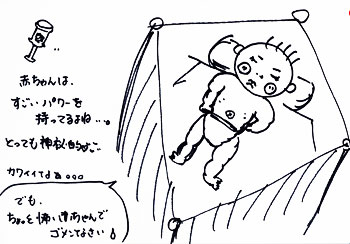 赤ちゃんは、
すごいパワーを
持ってるよね…。
とっても神秘的だ…
カワイイですよね。。。
でも、
ちょっと怖い赤ちゃんで
ゴメンなさい